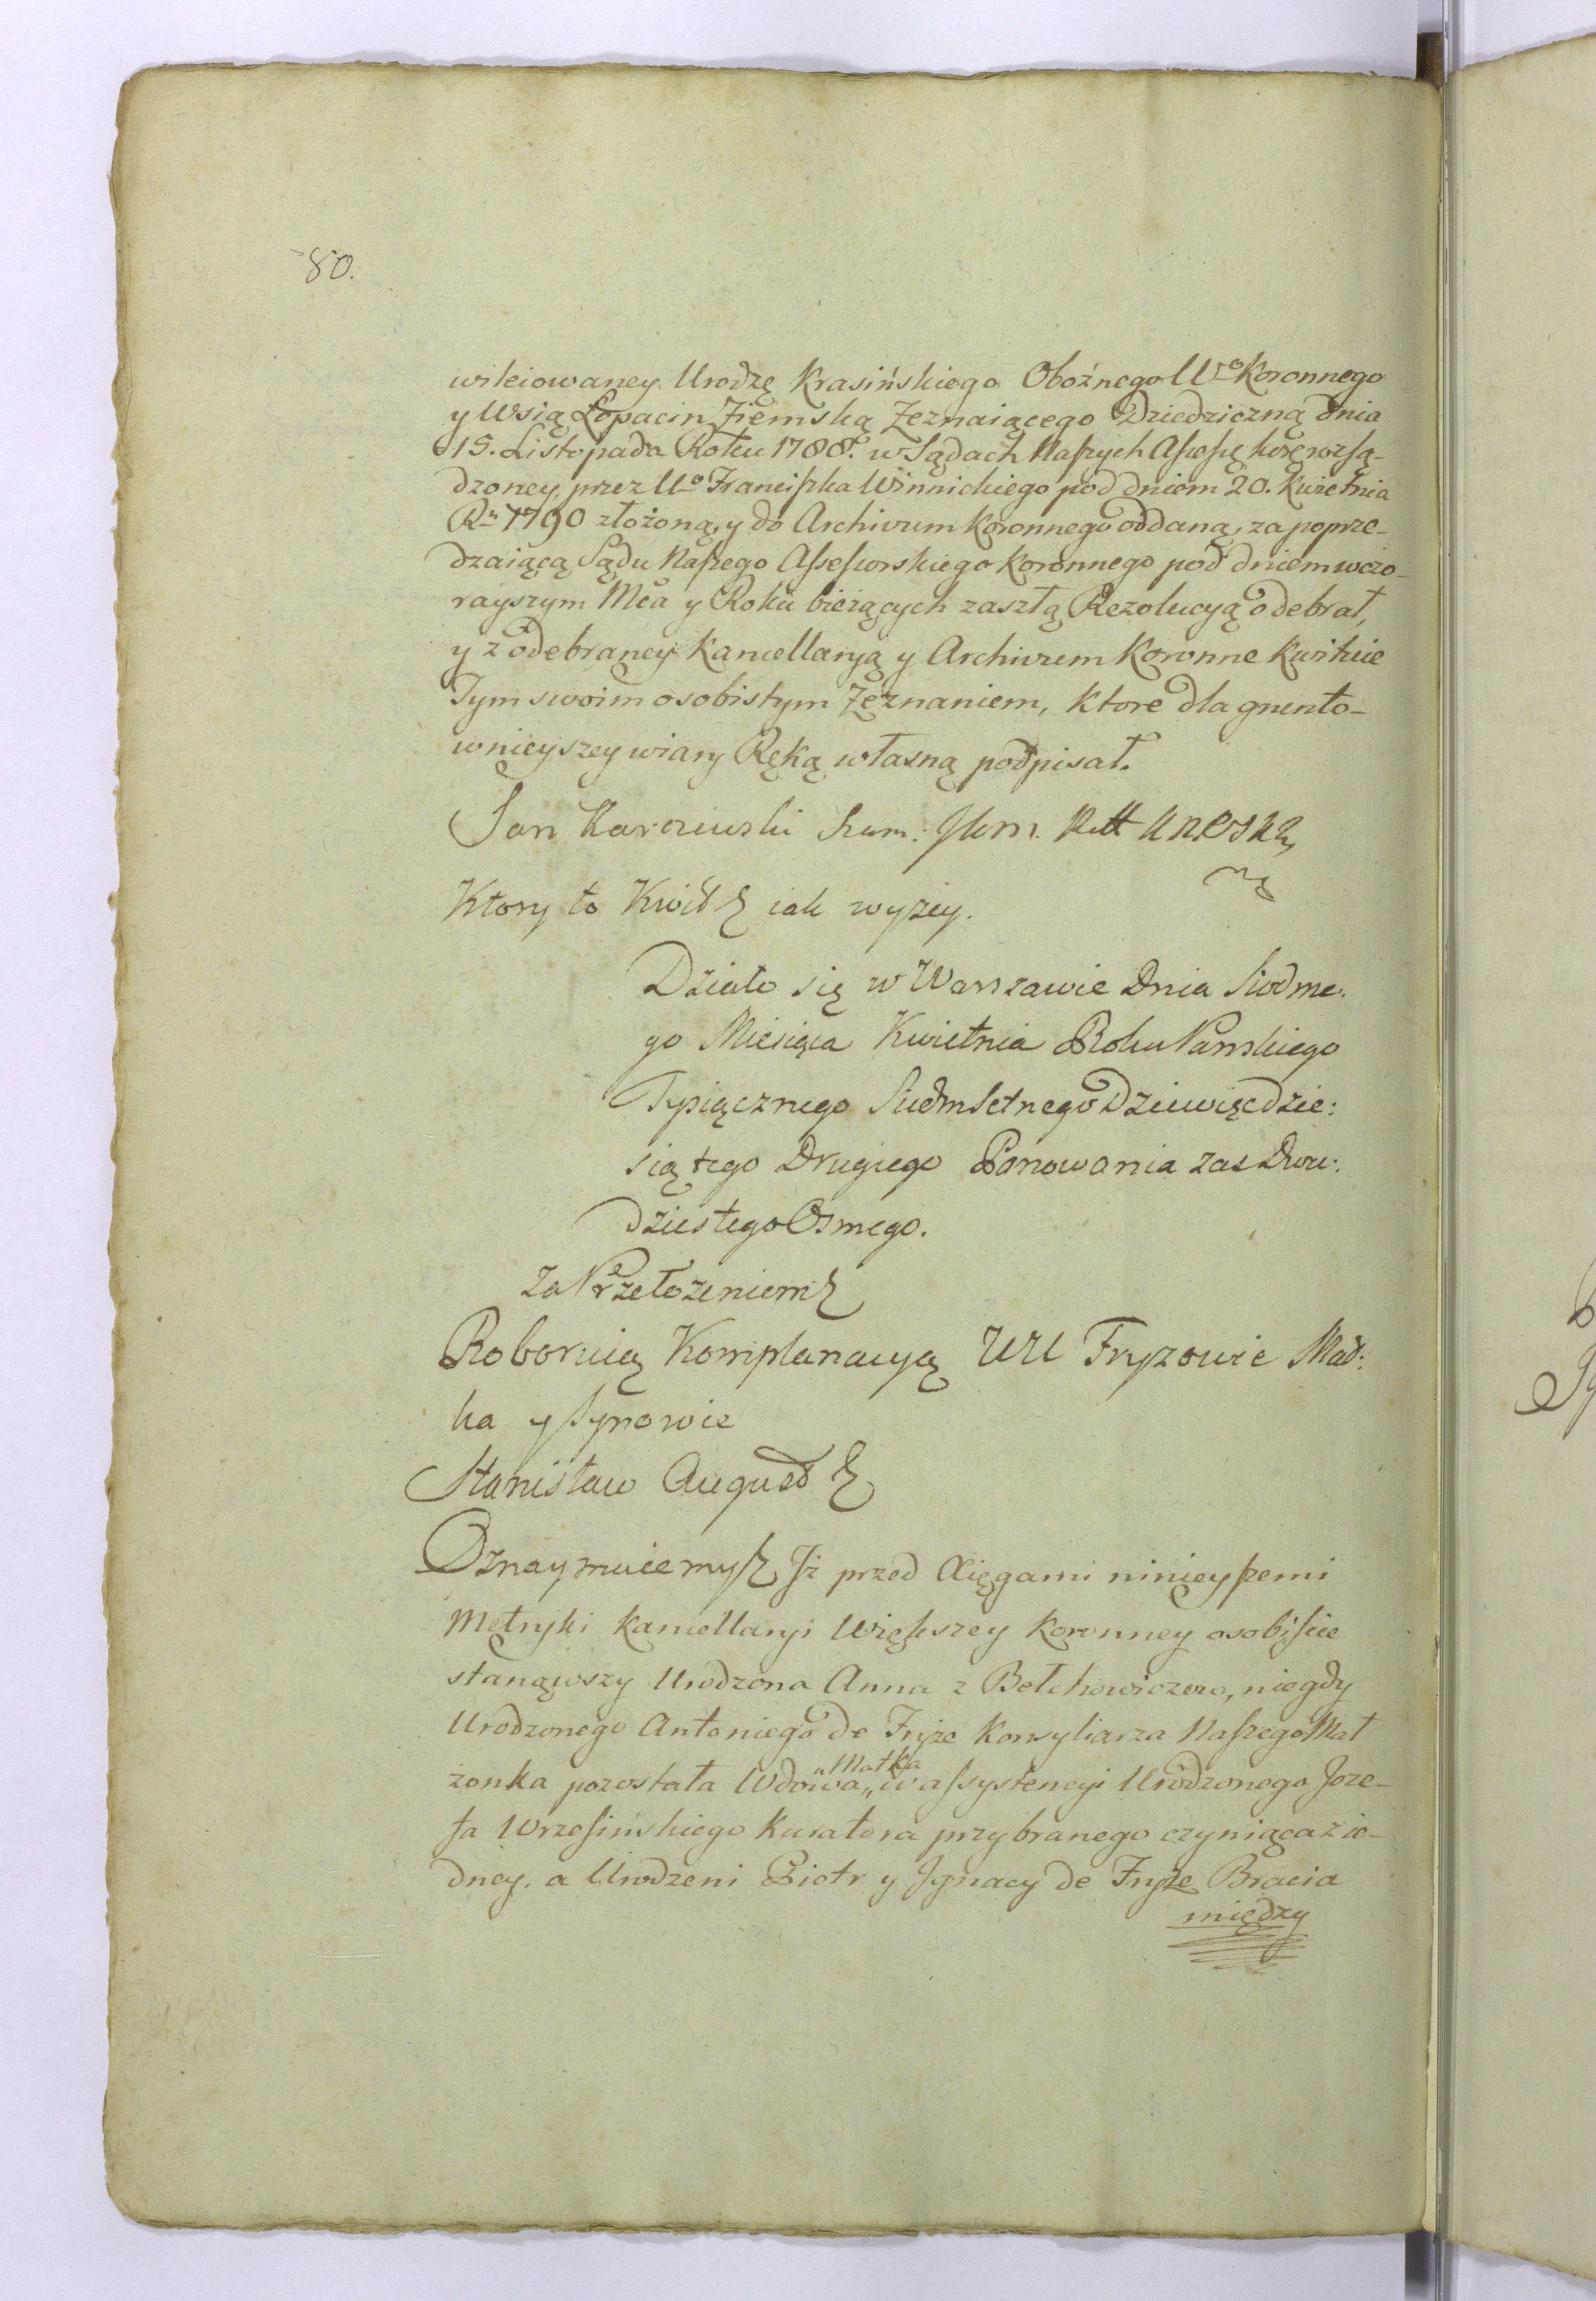 80.
wikiowaney Urodzę Krasińskiego Oboźnego Wgo Koronnego
y Wsią Łopacin Ziemską Zeznaiącego Dziedziczną dnia
15. Listopada Roku 1788. w Sądach Naszych Assessę
dzoney, przez Uo Franciszka Winnickiego pod dniem 20. Kwietnia
Ru 1790 złożoną, y do Archivum Koronnego oddaną, za poprze-
dzaiącą Sądu Naszego Assessorskiego Koronnego pod dniem wczo-
rayszym Mca y Roku bieżących zaszłą Rezolucyą odebrał,
y z odebraney Kancellaryą y Archivum Koronne kwituie
Tym swoim osobistym Zeznaniem, ktore dla grunto-
wnieyszey wiary Ręką własną podpisał.
Jan Karczewski
Ktory to Kwit iak wyżey.
Działo się w Warszawie Dnia Siodme-
go Miesiąca Kwietnia Roku Panskiego
Tysiącznego Siedmsetnego Dziewięcdzie:
siątego Drugiego Panowania zas Dwu:
dziestego Osmego.
Za Przełożeniem
Roboruią Komplanacyą UU Fryzowie Mat:
ka y Synowie
Stanisław August
Oznaymuiemy Jż przed Xięgami ninieyszemi
Metryki Kancellaryi Większey Koronney osobiście
stanąwszy Urodzona Anna z Bełchowiczow, niegdy
Urodzonego Antoniego de Fryze Konsyliarza Naszego Mał
żonka pozostała Wdowa „Matka „ w assystencyi Urodzonego Joze-
fa Wrzesińskiego Kuratora przybranego czyniąca z ie-
dney, a Urodzeni Piotr y Jgnacy de Fryze Bracia
między